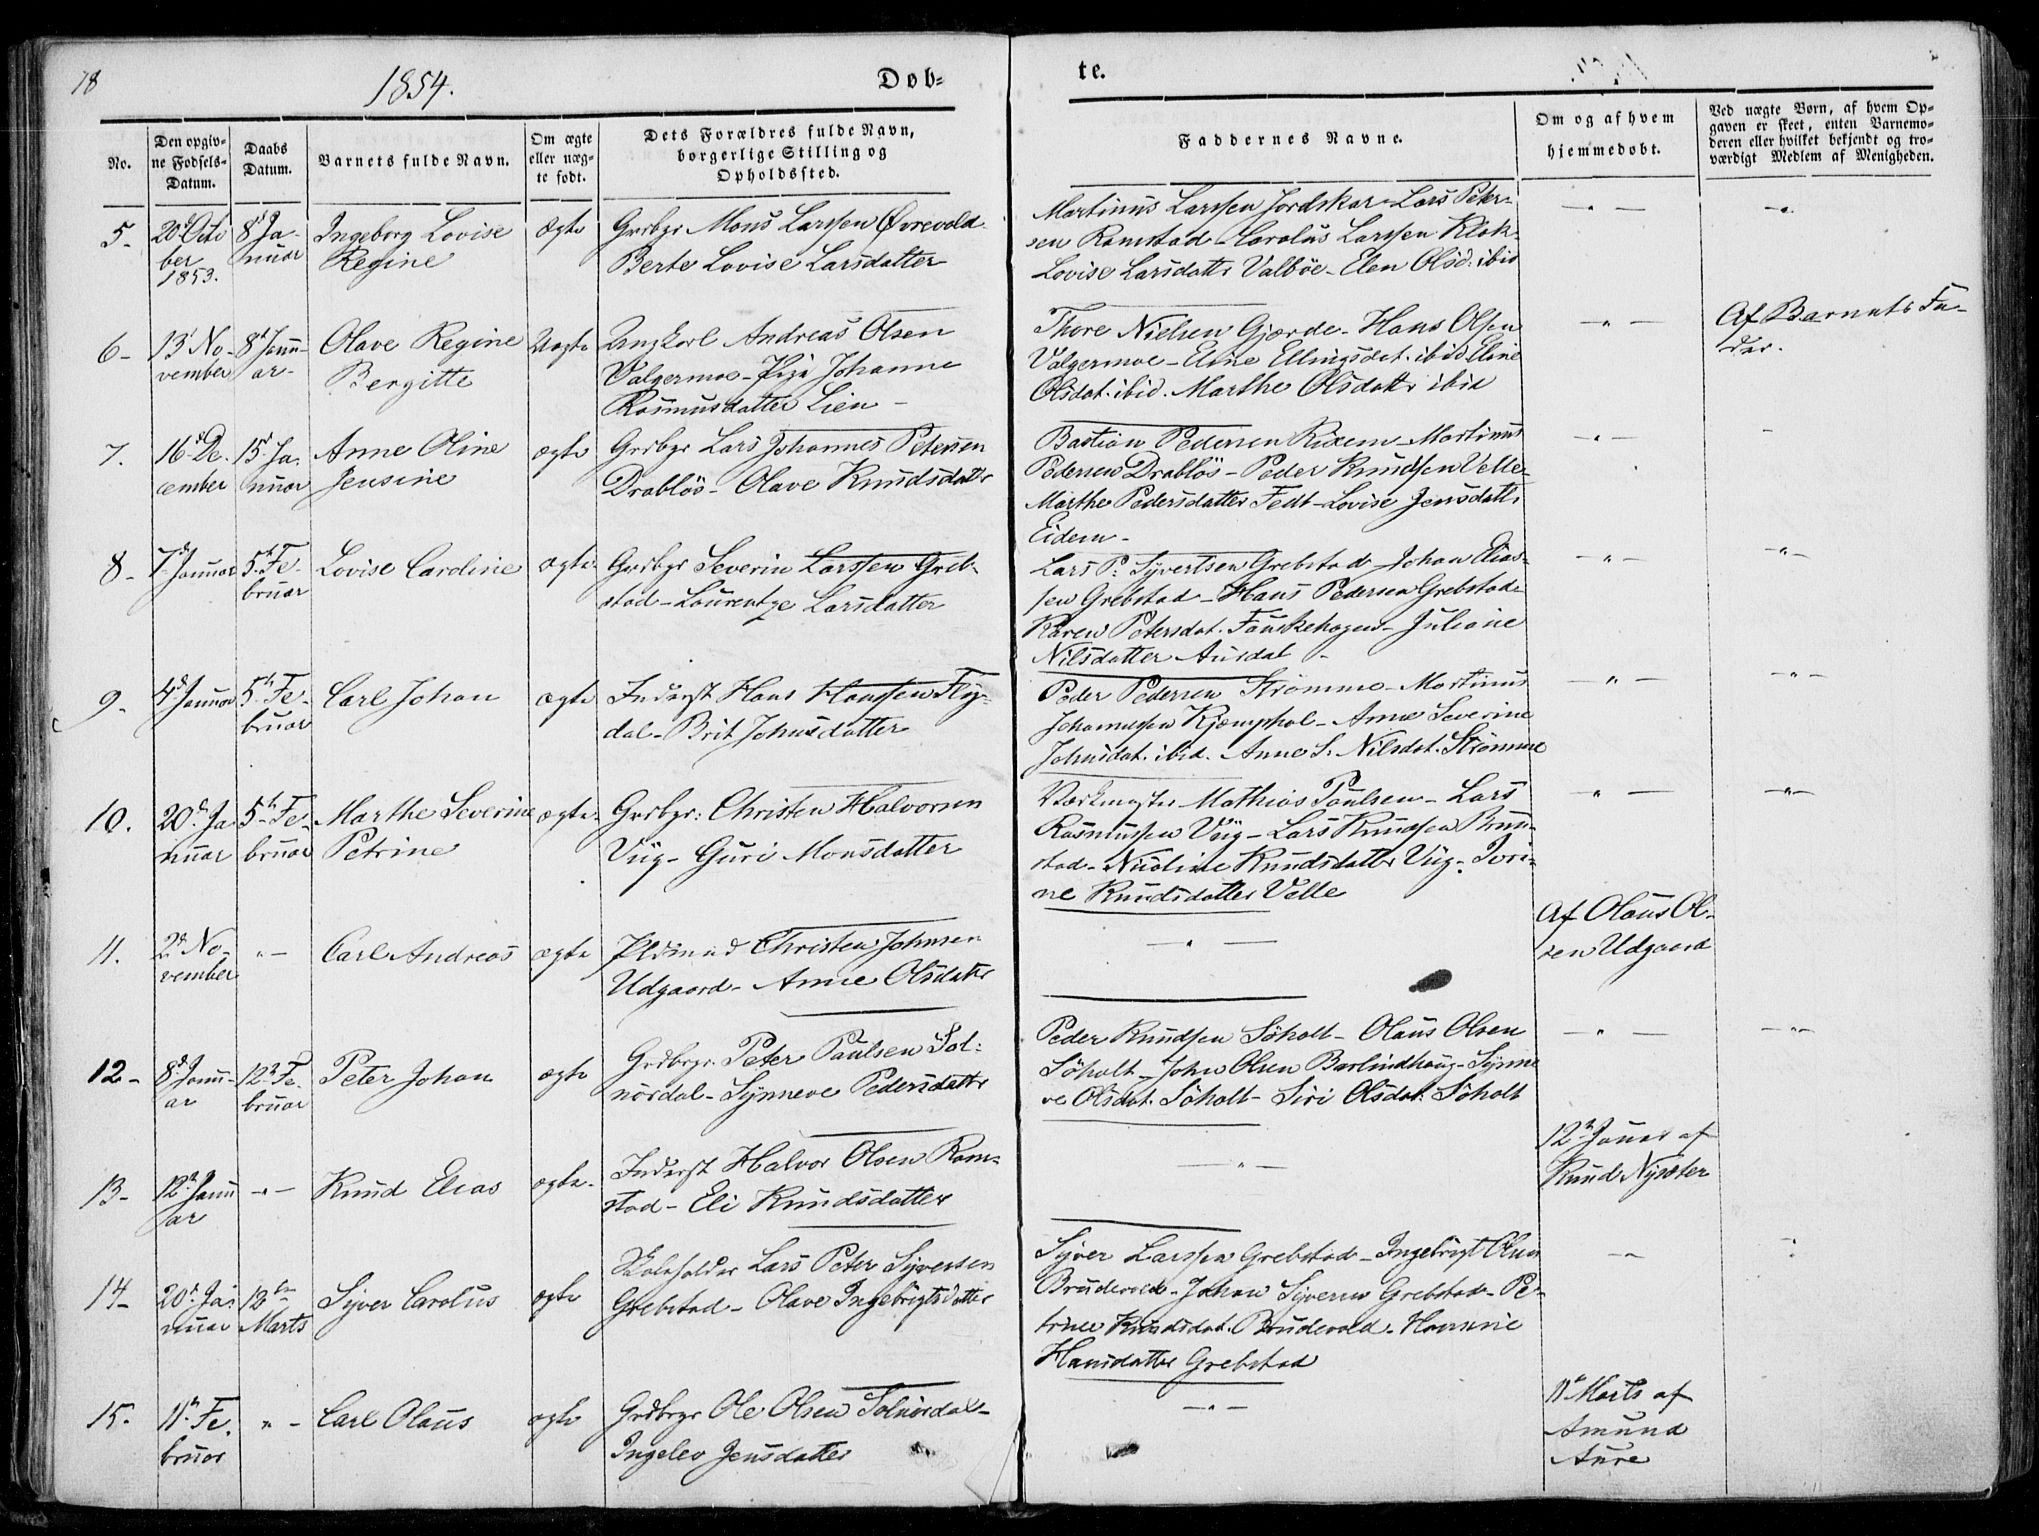 18
1854.
Døb-
te.
No.
Den opgiv-
ne Fødsels-
Datum.
Daabs
Datum.
Barnets fulde Navn.
Om ægte
eller uæg-
te født.
Dets Forældres fulde Navn,
borgerlige Stilling og
Opholdssted.
Faddernes Navne.
Om og af hvem
hjemmedøbt.
Ved uægte Børn, af hvem Op-
gaven er skeet, enten Barnemo-
deren eller hvilket bekjendt og tro-
værdigt Medlem af Menigheden.
5-
20d Octo
ber
1853.
8d Ja-
nuar
Ingeborg Lovise
Regine
ægte
Grdbgr Mons Larssen Øvrevold
Berte Lovise Larsdatter
Martinus Larssen Jordskar - Lars Peter-
sen Ramstad - Carolus Larssen Klok-
Lovise Larsdattr Valbøe - Elen Olsd. ibid
- " -
- " -
6-
13d No-
vember
8d Janu-
ar-
Olave Regine
Bergitte
Uægte
Ungkarl Andreas Olsen
Valgermoe - Pige Johanne
Rasmusdatter Lien -
Thore Nielsen Gjærde - Hans Olsen
Valgermoe - Eline Ellingsdat. ibid Eline
Olsdat. ibid. Marthe Olsdattr ibid
- " -
Af Barnets Fa-
der.
7.
16d De-
cember
15d Ja-
nuar
Anne Oline
Jensine
ægte
Grdbgr Lars Johannes Petersen
Drabløs - Olave Knudsdattr
Bastian Pedersen Rixem - Martinus
Pedersen Drabløs - Peder Knudsen Velle-
Marthe Pedersdatter Fedt - Lovise Jensdattr
Eidem -
- " -
-
8-
7d Januar
5te Fe-
bruar
Lovise Caroline
ægte
Grdbgr Severin Larssen Greb-
stad - Laurentze Larsdatter
Lars P: Syvertsen Grebstad Johan Elias-
sen Grebstad - Hans Pedersen Grebstad-
Karen Petersdat. Fauskehagen - Juliane
Nilsdatter Aursdal -
- " -
- " -
9-
4d Januar
5te Fe-
bruar
Carl Johan
ægte
Inderst Hans Hanssen Fly-
dal - Brit Johnsdatter
Peder Pedersen Strømme - Martinus
Johannessen Kjæmphol - Anne Severine
Johnsdat. ibid. Anne S. Nilsdat. Strømme
- " -
- " -
10.
20d Ja
nuar
5te Fe-
bruar
Marthe Severine
Petrine
ægte
Grdbgr: Christen Halvorsen
Viig - Guri Monsdatter
Værkmester Mathias Paulsen - Lars
Rasmussen Viig - Lars Knudsen Brun-
stad - Nicoline Knudsdatter Viig - Iveri-
ne Knudsdatter Velle
- " -
- " -
11.
2d No-
vember
" -
Carl Andreas
ægte
Pldsmd Christen Johnsen
Udgaard - Anne Olsdattr
- " -
Af Olaus Ol-
sen Udgaard
12-
8d Janu-
ar
12te Fe-
bruar
Peter Johan
ægte
Grdbrgr Peter Paulsen Sol:
nørdal - Synneve Pedersdattr
Peder Knudsen Søholt - Olaus Olsen
Søholt - John Olsen Barlindhaug - Synne
ve Olsdat. Søholt - Siri Olsdat. Søholt
- " -
- " -
13-
12te Janu
ar
- " -
Knud Elias
ægte
Inderst Halvor Olsen Ram-
stad - Eli Knudsdatter
- " -
12te Januar af
Knud Nysæter
14-
20d Ja-
nuar
12te
Marts
Syver Carolus
ægte
Skoleholder Lars Peter Syversen
Grebstad - Olave Ingebrigtsdatter
Syver Larssen Grebstad - Ingebrigt Olsen
Brudevold - Johan Syversen Grebstad - Pe-
trine Knudsdat. Brudevold - Hansine
Hansdatter Grebstad
- " -
15.
11te Fe-
bruar
" -
Carl Olaus
ægte
Grdbrgr Ole Olsen Solnørdal-
Ingelev Jensdatter
- " -
11te Marts af
Amund
Aure